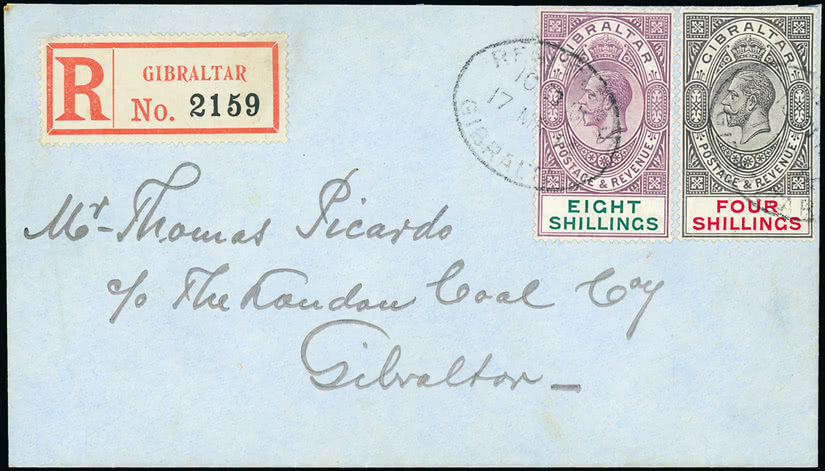 R
GIBRALTAR
No. 2159
GIBRALTAR
POSTAGE & REVENUE
EIGHT
SHILLINGS
GIBRALTAR
POSTAGE & REVENUE
FOUR
SHILLINGS
17
Mr Thomas Picardo
c/o The London Coal Coy
Gibraltar